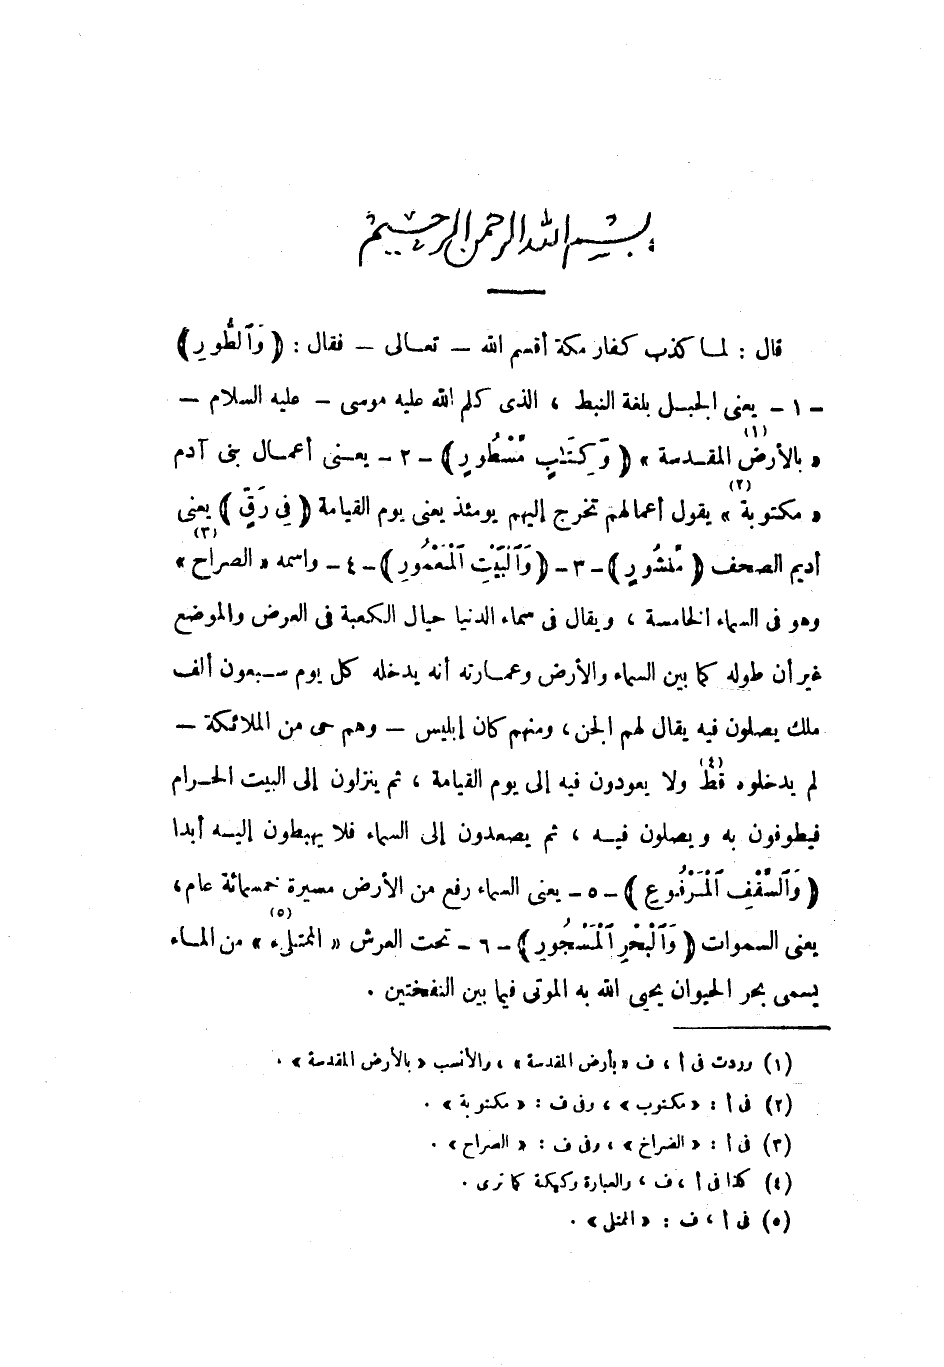 بسم الله الرحمن الرحيم
قال : لما كذب كفار مكة أقسم الله — تعالى — فقال : ﴿ وَٱلطُّورِ ﴾
- ١ - يعنى الجبل بلغة النبط ، الذى كلم الله عليه موسى - عليه السلام —
« بالأرض المقدسة (١) » ﴿ وَكِتَـٰبٍ مَّسْطُورٍ ﴾ - ٢ - يعنى أعمال بنى آدم
« مكتوبة (٢) » يقول أعمالهم تخرج إليهم يومئذ يعنى يوم القيامة ﴿ فِى رَقٍّ ﴾ يعنى
أديم الصحف ﴿ مَّنشُورٍ ﴾ - ٣ - ﴿ وَٱلْبَيْتِ ٱلْمَعْمُورِ ﴾ - ٤ - واسمه « الصراح (٣) »
وهو فى السماء الخامسة ، ويقال فى سماء الدنيا حيال الكعبة فى العرض والموضع
غير أن طوله كما بين السماء والأرض وعمارته أنه يدخله كل يوم سبعون ألف
ملك يصلون فيه يقال لهم الجن ، ومنهم كان إبليس — وهم حى من الملائكة —
لم يدخلوه قط (٤) ولا يعودون فيه إلى يوم القيامة ، ثم ينزلون إلى البيت الحرام
فيطوفون به ويصلون فيه ، ثم يصعدون إلى السماء فلا يهبطون إليه أبدا
﴿ وَٱلسَّقْفِ ٱلْمَرْفُوعِ ﴾ - ٥ - يعنى السماء رفع من الأرض مسيرة خمسمائة عام ،
يعنى السموات ﴿ وَٱلْبَحْرِ ٱلْمَسْجُورِ ﴾ - ٦ - تحت العرش « الممتلىء (٥) » من الماء
يسمى بحر الحيوان يحيى الله به الموتى فيما بين النفختين .
(١) وردت فى أ ، ف « بأرض المقدسة » ، والأنسب « بالأرض المقدسة » .
(٢) فى أ : « مكتوب » ، وفى ف : « مكتوبة » .
(٣) فى أ : « الضراخ » ، وفى ف : « الصراح » .
(٤) كذا فى أ ، ف ، والعبارة ركيكة كما ترى .
(٥) فى أ ، ف : « الممتلى » .